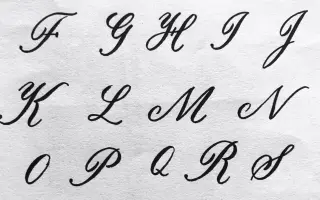 F G H I J
K L M N
O P Q R S